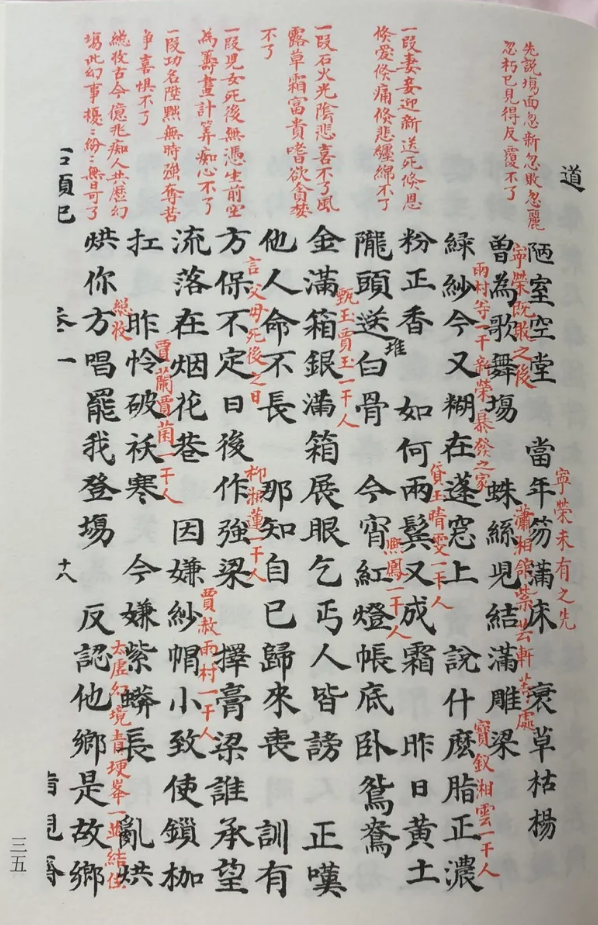 道
先說塲面忽新忽敗忽麗
忽朽已見得反覆不了
一段妻妾迎新送死倐恩
倐愛倐痛倐悲纒綿不了
一段石火光陰悲喜不了風
露草霜富貴嗜欲貪婪
不了
一段兒女死後無憑生前空
為籌畫計筭痴心不了
一段功名陞黜無時强奪苦
争喜惧不了
總收古今億兆痴人共歷幻
塲此幻事擾〻紛〻無日可了
陋室空堂 當年笏滿床 衰草枯楊
寧榮未有之先
寧榮既敗之後
曾為歌舞塲 蛛絲兒結滿雕梁
瀟湘舘紫芸軒等處
雨村等一干新榮暴發之家
綠紗今又糊在蓬窓上 說什麽脂正濃
寶釵湘雲一干人
粉正香 如何兩鬂又成霜 昨日黃土
貸玉晴雯一干人
隴頭送白骨 今宵紅燈帳底卧鴛鴦
堆
熙鳳一干人
金滿箱銀滿箱展眼乞丐人皆謗 正嘆
甄玉賈玉一干人
他人命不長 那知自己歸來喪 訓有
言父母死後之日
方保不定日後作強梁 擇膏梁誰承望
柳湘蓮一干人
流落在烟花巷 因嫌紗帽小致使鎖枷
賈赦雨村一干人
扛 昨怜破袄寒 今嫌紫蟒長 亂烘
賈蘭賈菌一干人
總收
烘你方唱罷我登塲 反認他鄉是故鄉
太虛幻境青埂峯一並結住
石頭記
卷一
十八
三五